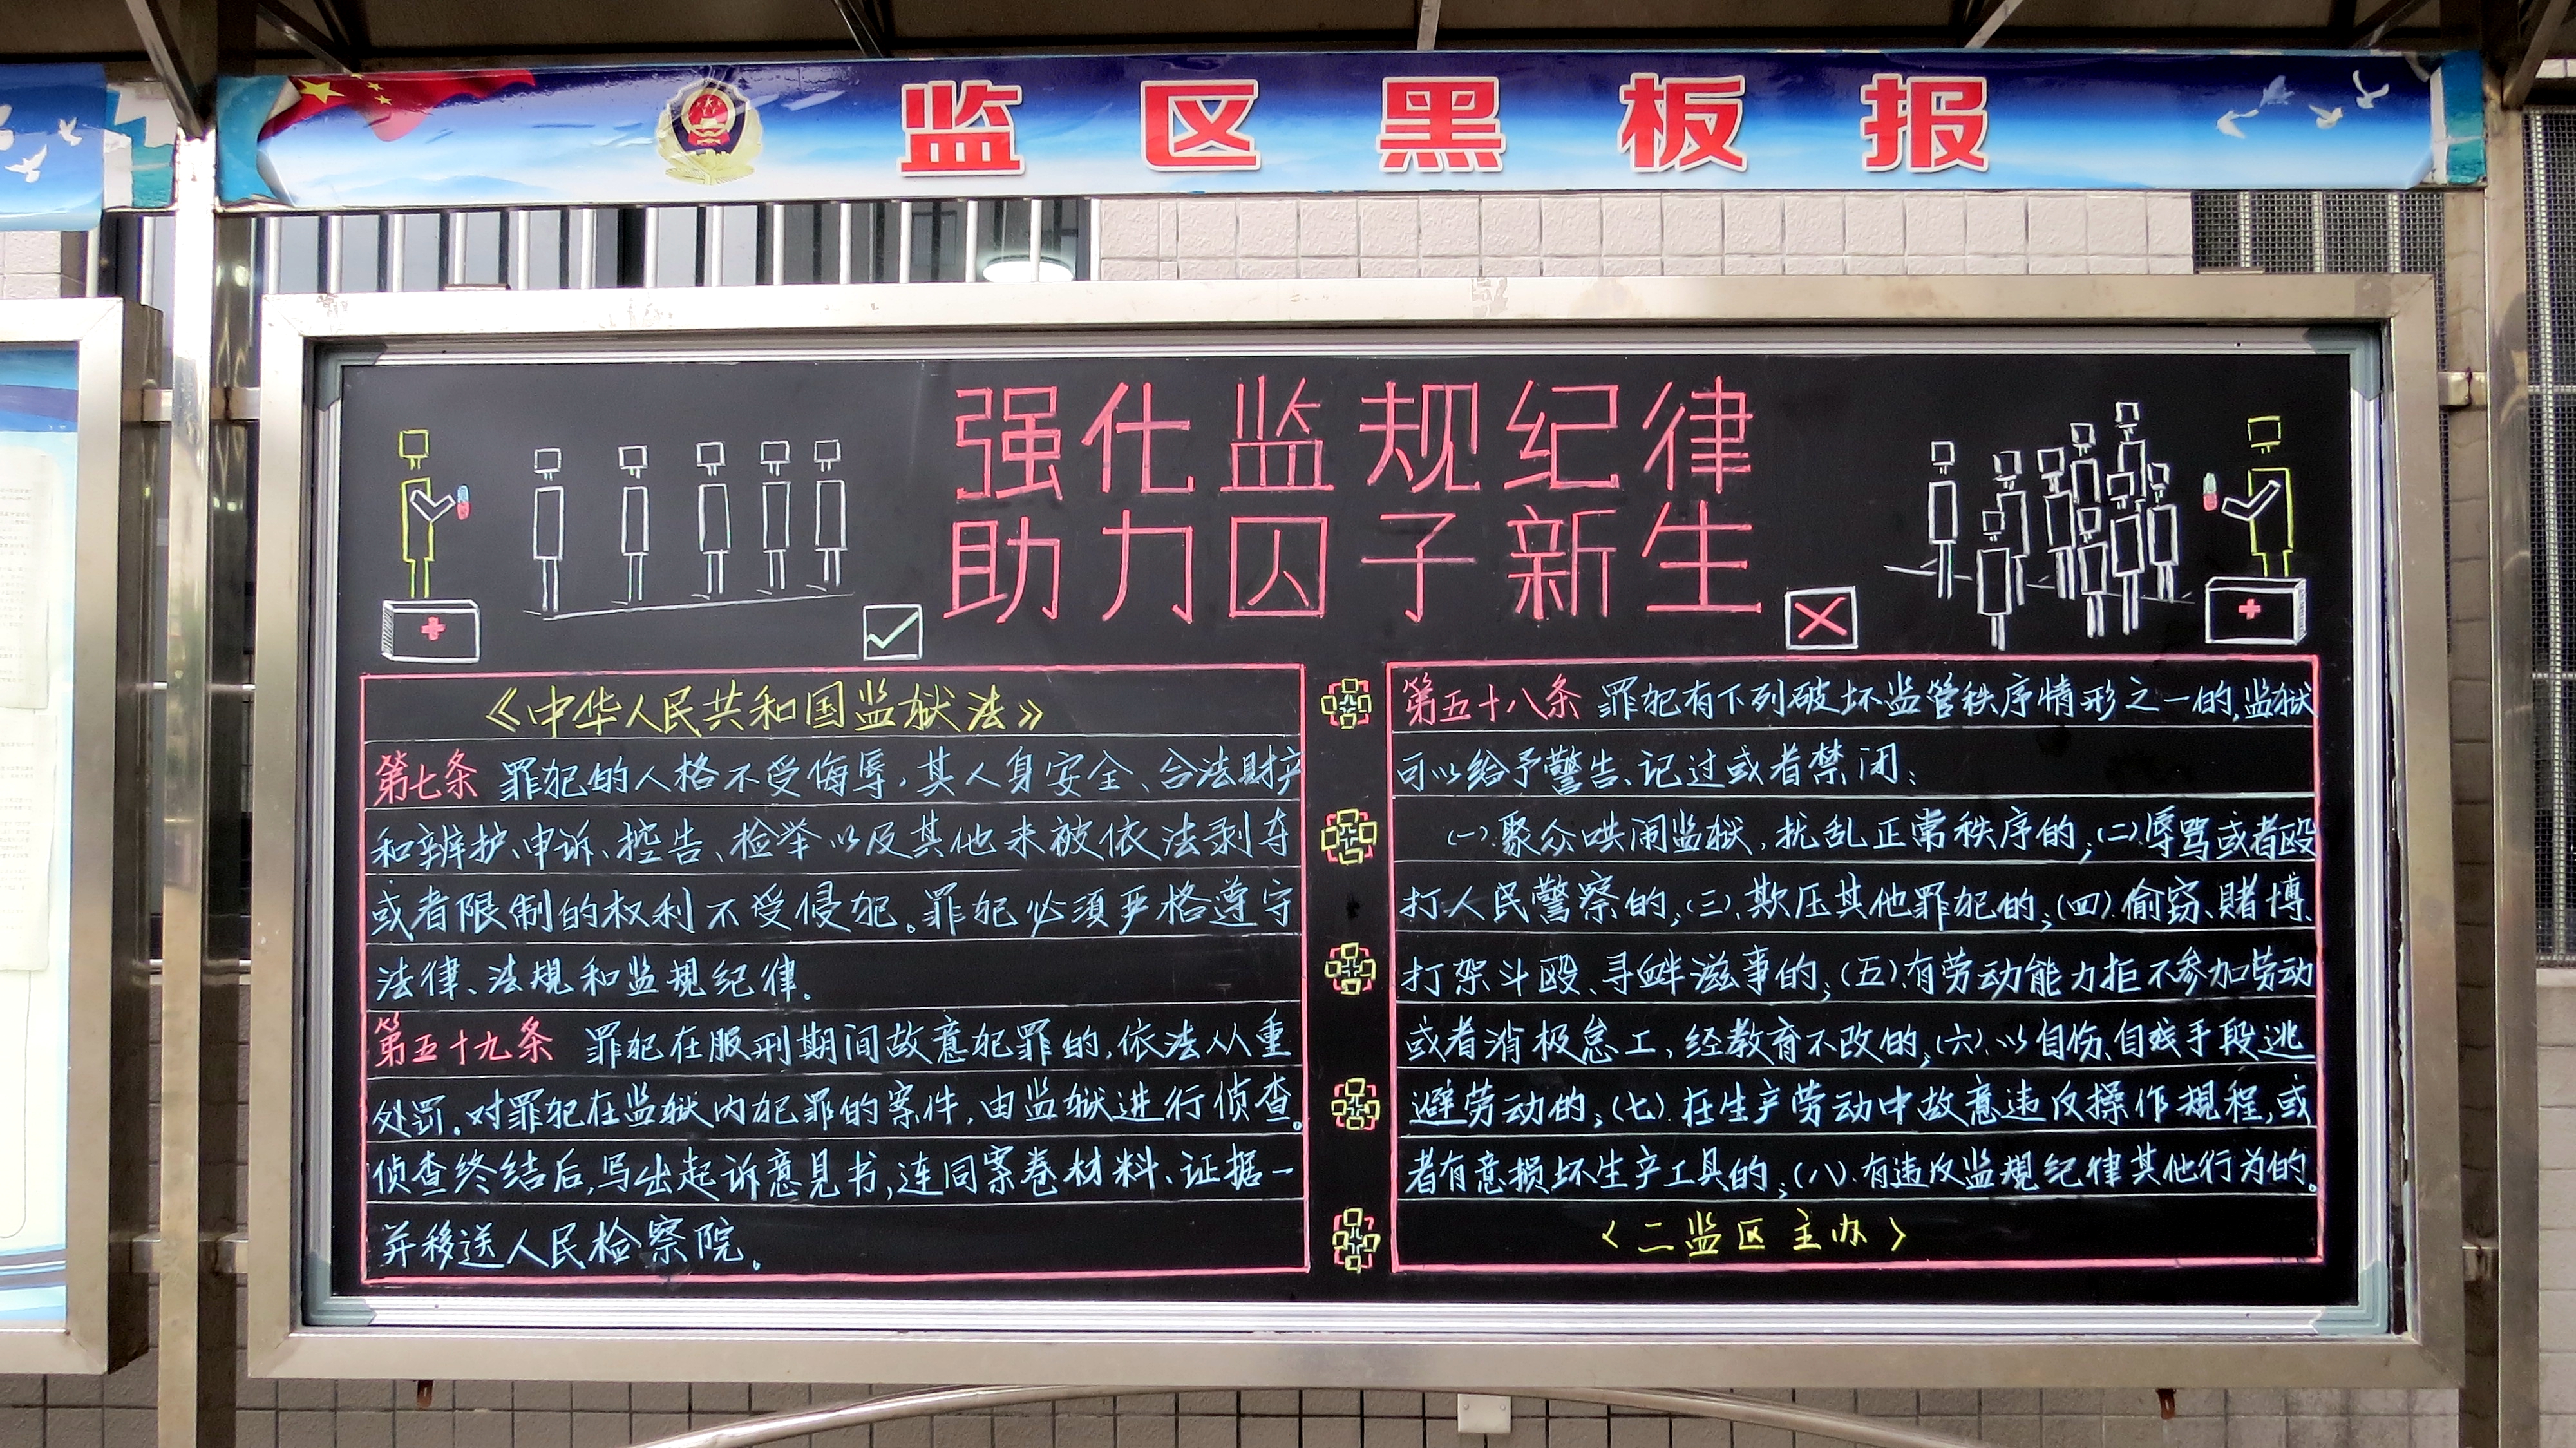 监区黑板报
强化监规纪律
助力囚子新生
《中华人民共和国监狱法》
第七条 罪犯的人格不受侮辱，其人身安全、合法财产
和辨护、申诉、控告、检举以及其他未被依法剥夺
或者限制的权利不受侵犯。罪犯必须严格遵守
法律、法规和监规纪律。
第五十九条 罪犯在服刑期间故意犯罪的，依法从重
处罚。对罪犯在监狱内犯罪的案件，由监狱进行侦查。
侦查终结后，写出起诉意见书，连同案卷材料、证据一
并移送人民检察院。
第五十八条 罪犯有下列破坏监管秩序情形之一的，监狱
可以给予警告、记过或者禁闭：
(一)．聚众哄闹监狱，扰乱正常秩序的；(二)．辱骂或者殴
打人民警察的；(三)．欺压其他罪犯的；(四)．偷窃、赌博、
打架斗殴、寻衅滋事的；(五)．有劳动能力拒不参加劳动
或者消极怠工，经教育不改的；(六)．以自伤、自残手段逃
避劳动的；(七)．在生产劳动中故意违反操作规程，或
者有意损坏生产工具的；(八)．有违反监规纪律其他行为的。
〈二监区主办〉